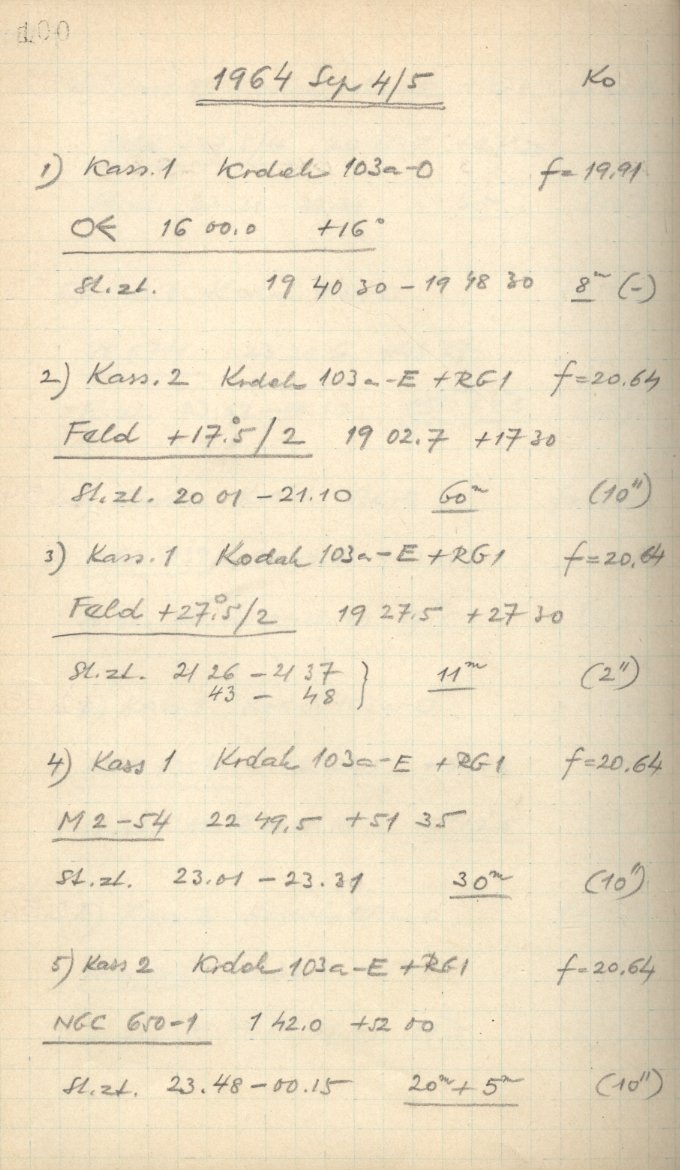 1964 Sep 4/5 Ko
1) Kass. 1 Kodak 103a-O f=19.91
16 00.0 +16°
St.zt. 19 40 30 – 19 48 30 8m (-)
2) Kass. 2 Kodak 103a-E +RG1 f=20.64
Feld +17°.5/2 19 02.7 +17 30
St.zt. 20 01 – 21.10 60m (10")
3) Kass. 1 Kodak 103a-E +RG1 f=20.64
Feld +27°.5/2 19 27.5 +27 30
St.zt. 21 26 – 21 37 } 11m (2")
43 – 48
4) Kass 1 Kodak 103a-E +RG1 f=20.64
M 2-54 22 49.5 +51 35
St.zt. 23.01 – 23.31 30m (10")
5) Kass 2 Kodak 103a-E +RG1 f=20.64
NGC 650-1 1 42.0 +52 00
St.zt. 23.48 – 00.15 20m + 5m (10")